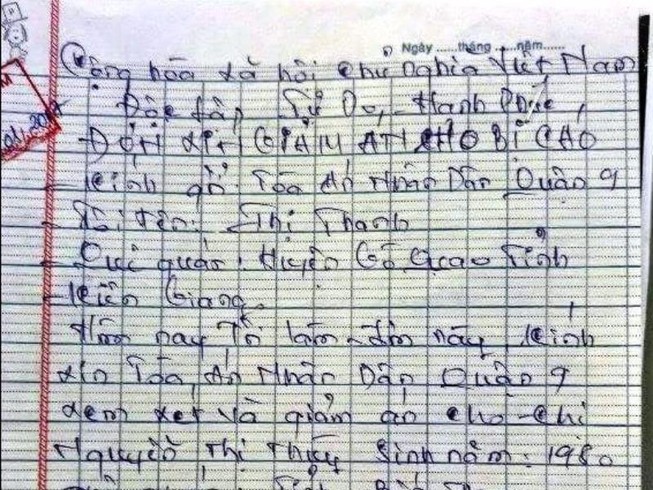 Ngày ......tháng ......năm......
Cộng hòa xã hội chủ nghĩa Việt Nam
Độc lập, Tự Do, Hạnh Phúc
ĐƠN XIN GIẢM ÁN CHO BỊ CÁO
- Kính gởi: Tòa Án Nhân Dân Quận 9
- Tôi tên: Thị Thanh
- Quê quán: Huyện Gò Quao Tỉnh
Kiên Giang.
Hôm nay Tôi làm đơn này, kính
xin Tòa Án Nhân Dân Quận 9
xem xét và giảm án cho chị
Nguyễn Thị Thủy Sinh năm: 1980